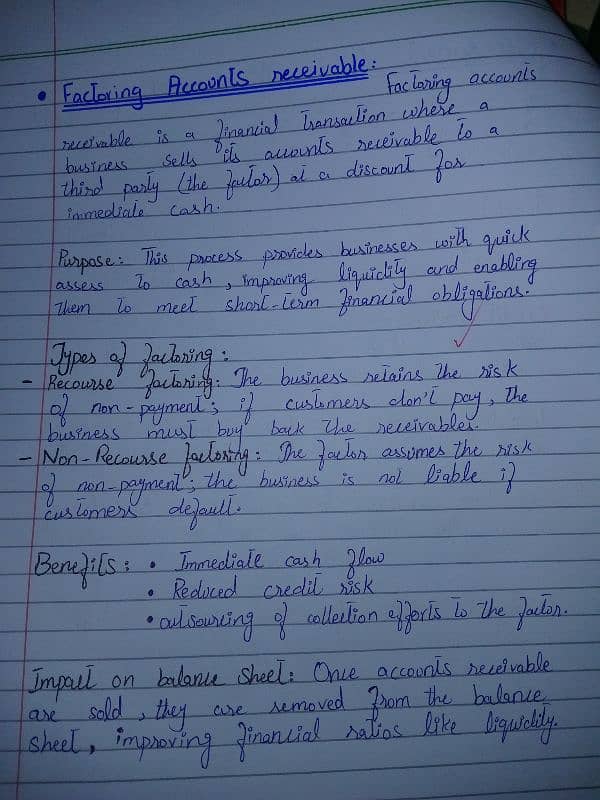 • Factoring Accounts receivable:
Factoring accounts
receivable is a financial transaction where a
business sells its accounts receivable to a
third party (the factor) at a discount for
immediate cash.
Purpose: This process provides businesses with quick
assess to cash, improving liquidity and enabling
them to meet short-term financial obligations.
Types of factoring:
- Recourse factoring: The business retains the risk
of non-payment; if customers don't pay, the
business must buy back the receivables.
- Non-Recourse factoring: The factor assumes the risk
of non-payment; the business is not liable if
customers default.
Benefits: • Immediate cash flow
• Reduced credit risk
• outsourcing of collection efforts to the factor.
Impact on balance sheet: Once accounts receivable
are sold, they are removed from the balance
sheet, improving financial ratios like liquidity.